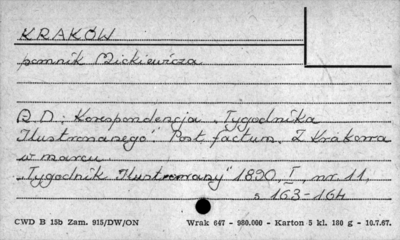 KRAKÓW
pomnik Mickiewicza
R.D.: Korespondencja „Tygodnika
Ilustrowanego". Post factum. Z Krakowa
w marcu
„Tygodnik Ilustrowany" 1890, I, nr 11,
s. 163-164
CWD B 15b Zam. 915/DW/ON Wrak 647 - 980.000 - Karton 5 kl. 180 g - 10.7.67.